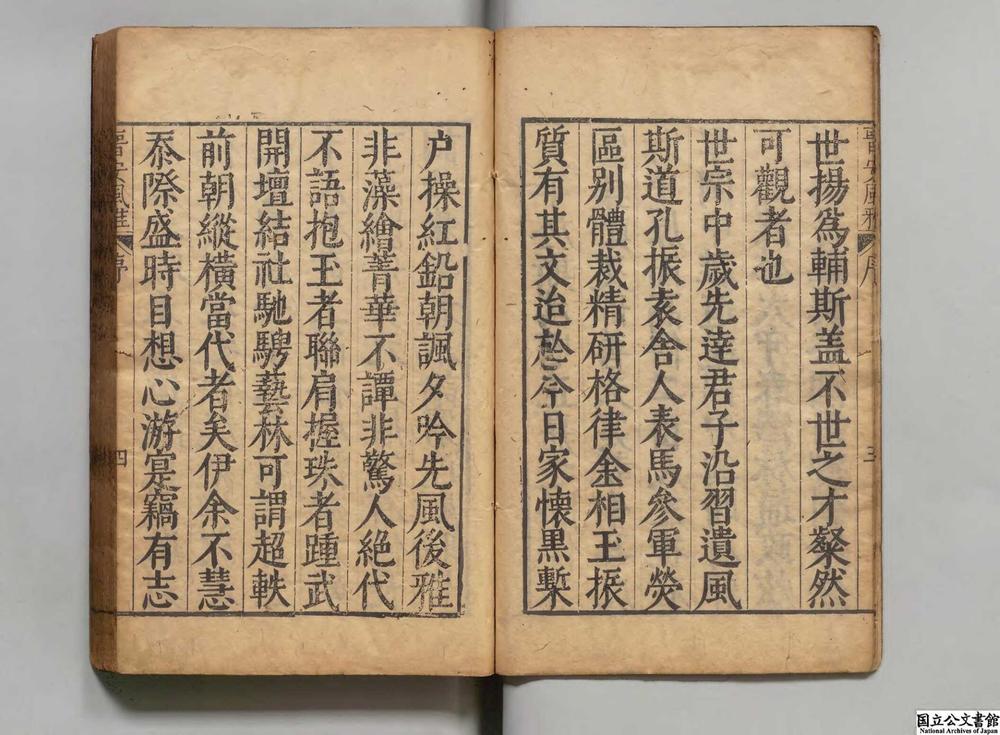 世揚為輔斯盖不世之才粲然
可觀者也
世宗中歲先達君子沿習遺風
斯道孔振袁舍人表馬參軍熒
區別體裁精研格律金相玉振
質有其文迨於今日家懷黑槧
户操紅鉛朝諷夕吟先風後雅
非藻繪菁華不譚非驚人絕代
不語抱玉者聯肩握珠者踵武
開壇結社馳騁藝林可謂超軼
前朝縱橫當代者矣伊余不慧
泰際盛時目想心游寔竊有志
風雅 序
四
国立公文書館
National Archives of Japan